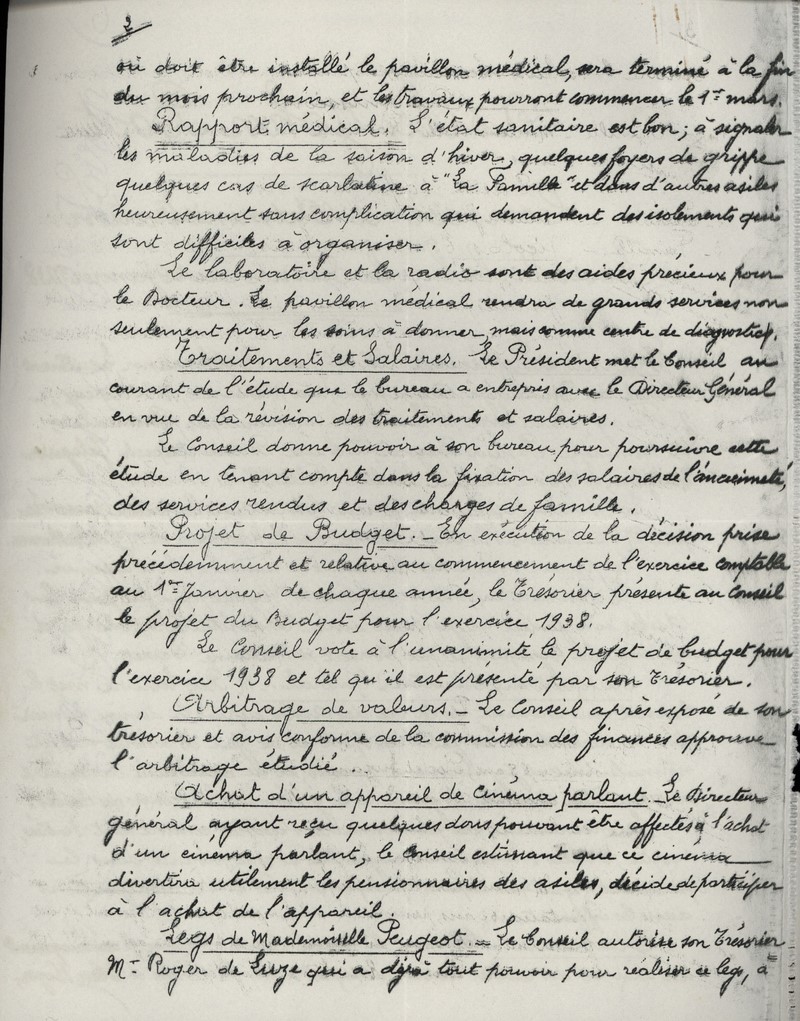 2
où doit être installé le pavillon médical, sera terminé à la fin
du mois prochain, et les travaux pourront commencer le 1er mars.
Rapport médical. L'état sanitaire est bon; à signaler
les maladies de la saison d'hiver, quelques foyers de grippe
quelques cas de scarlatine à "La Famille" et dans d'autres asiles
heureusement sans complication qui demandent des isolements qui
sont difficiles à organiser.
Le laboratoire et la radio sont des aides précieux pour
le Docteur. Le pavillon médical rendra de grands services non
seulement pour les soins à donner, mais comme centre de diagnostics.
Traitements et Salaires. Le Président met le Conseil au
courant de l'étude que le bureau a entrepris avec le Directeur Général
en vue de la révision des traitements et salaires.
Le Conseil donne pouvoir à son bureau pour poursuivre cette
étude en tenant compte dans la fixation des salaires de l'ancienneté,
des services rendus et des charges de famille.
Projet de Budget. - En exécution de la décision prise
précédemment et relative au commencement de l'exercice comptable
au 1er Janvier de chaque année, le Trésorier présente au Conseil
le projet du Budget pour l'exercice 1938.
Le Conseil vote à l'unanimité le projet de budget pour
l'exercice 1938 et tel qu'il est présenté par son Trésorier.
Arbitrage de valeurs. - Le Conseil après exposé de son
trésorier et avis conforme de la commission des finances approuve
l'arbitrage étudié.
Achat d'un appareil de cinéma parlant. - Le Directeur
général ayant reçu quelques dons pouvant être affectés à l'achat
d'un cinema parlant, le Conseil estimant que ce cinéma
divertira utilement les pensionnaires des asiles, décide de participer
à l'achat de l'appareil.
Legs de Mademoiselle Peugeot. - Le Conseil autorise son Trésorier
Mr Roger de Luze qui a déjà tout pouvoir pour réaliser ce legs, à